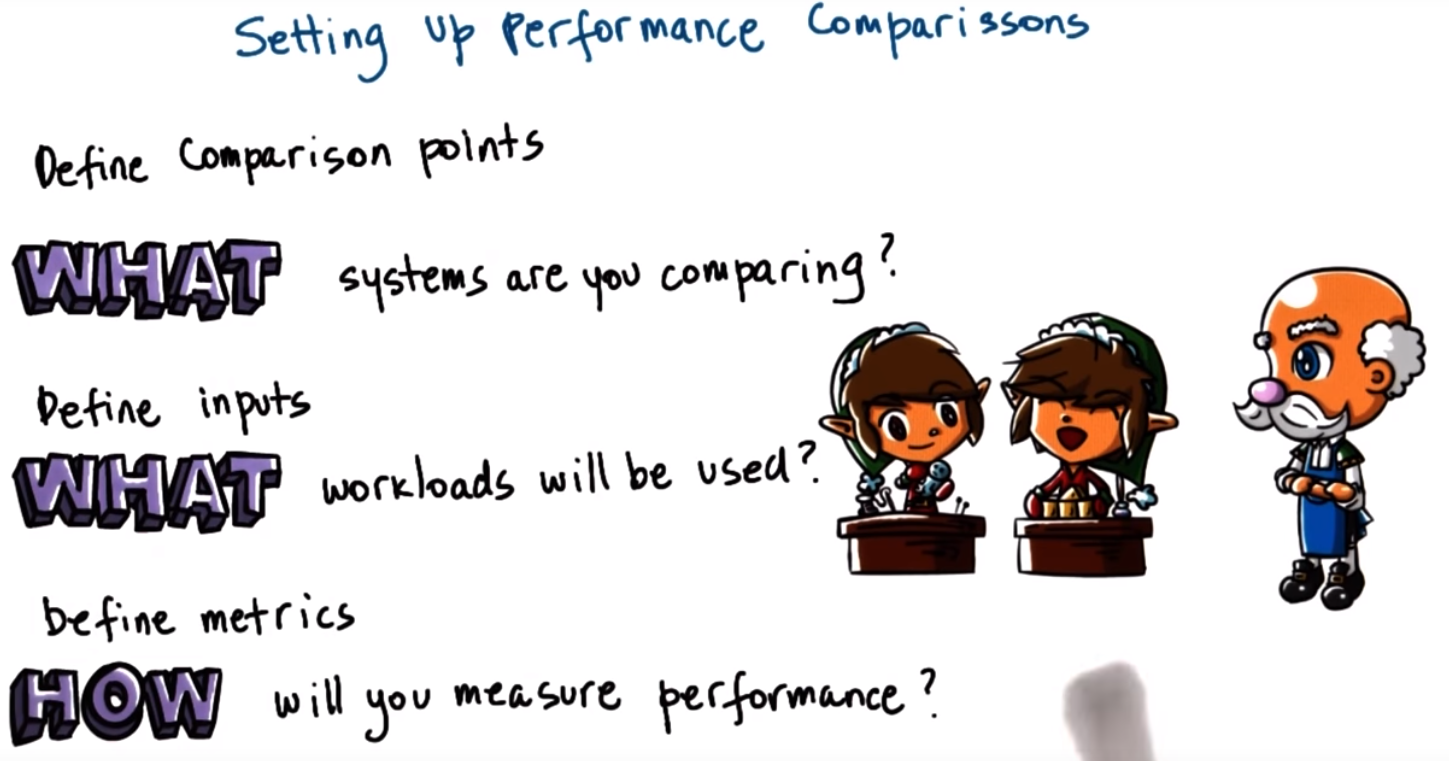 Setting Up Performance Comparissons
Define Comparison points
WHAT systems are you comparing?
Define inputs
WHAT workloads will be used?
Define metrics
HOW will you measure performance?